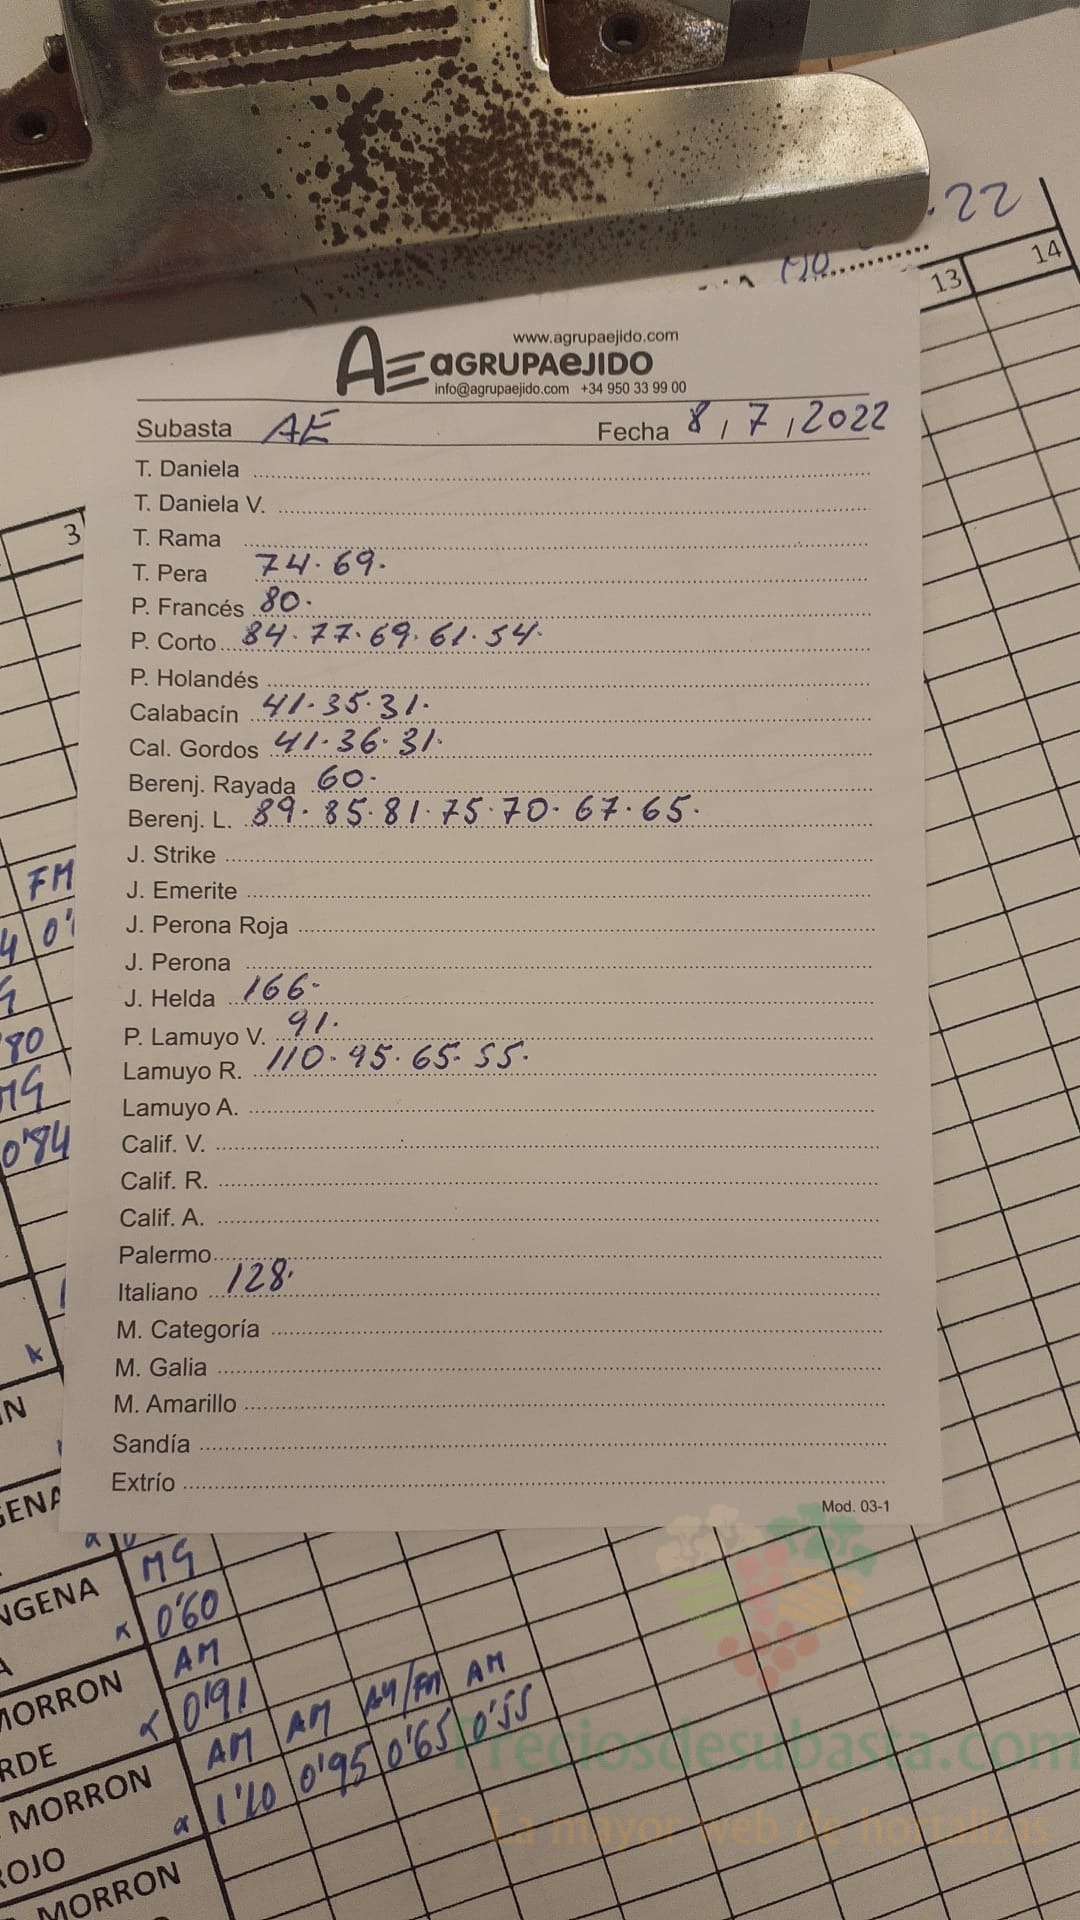 .22
13 14
3
www.agrupaejido.com
AE aGRUPAeJIDO
info@agrupaejido.com +34 950 33 99 00
Subasta AE Fecha 8 / 7 / 2022
T. Daniela
T. Daniela V.
T. Rama
T. Pera 74. 69.
P. Francés 80.
P. Corto 84. 77. 69. 61. 54.
P. Holandés
Calabacín 41. 35. 31.
Cal. Gordos 41. 36. 31.
Berenj. Rayada 60.
Berenj. L. 89. 85. 81. 75. 70. 67. 65.
J. Strike
J. Emerite
J. Perona Roja
J. Perona
J. Helda 166.
P. Lamuyo V. 91.
Lamuyo R. 110. 95. 65. 55.
Lamuyo A.
Calif. V.
Calif. R.
Calif. A.
Palermo
Italiano 128.
M. Categoría
M. Galia
M. Amarillo
Sandía
Extrío
Mod. 03-1
FM
80
MG
0'84
MG
NGENA 0'60
AM
MORRON 0'91
RDE AM AM AM/FM AM
MORRON 1'10 0'95 0'65 0'55
ROJO
MORRON
Preciosdesubasta.com
La mayor web de hortalizas